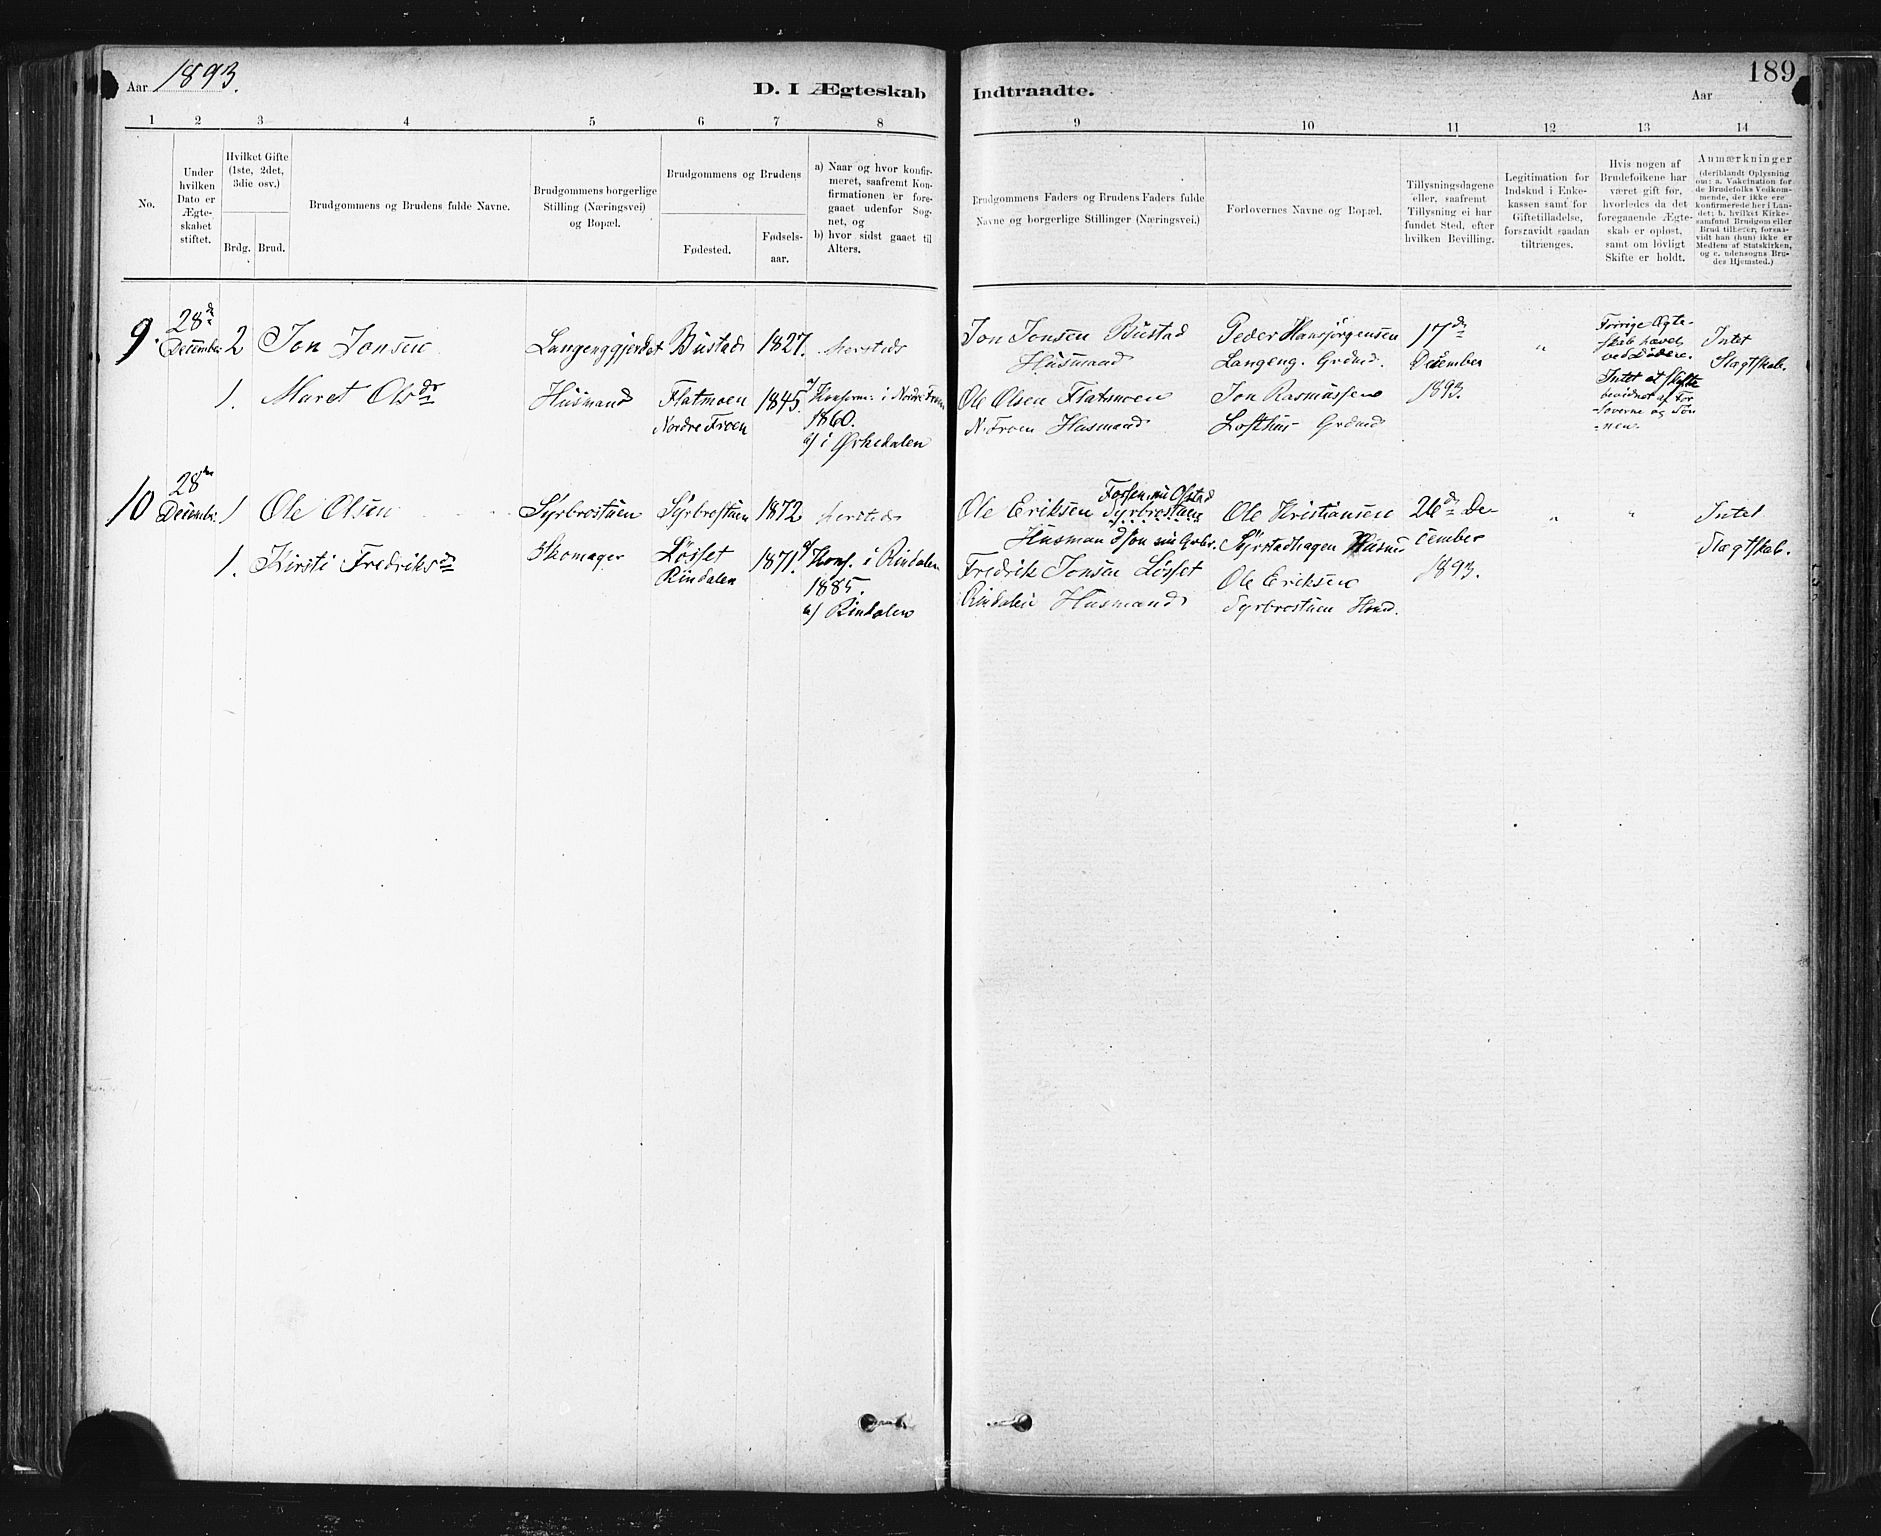 Aar 1893.
D. I Ægteskab Indtraadte.
189
Aar
1 2 3 4 5 6 7 8 9 10 11 12 13 14
No.
Under
hvilken
Dato er
Ægte-
skabet
stiftet.
Hvilket Gifte
(1ste, 2det,
3die osv.)
Brdg. Brud.
Brudgommens og Brudens fulde Navne.
Brudgommens borgerlige
Stilling (Næringsvei)
og Bopæl.
Brudgommens og Brudens
Fødested.
Fødsels-
aar.
a) Naar og hvor konfir-
meret, saafremt Kon-
firmationen er fore-
gaaet udenfor Sog-
net, og
b) hvor sidst gaaet til
Alters.
Brudgommens Faders og Brudens Faders fulde
Navne og borgerlige Stillinger (Næringsvei.)
Forlovernes Navne og Bopæl.
Tillysningsdagene
eller, saafremt
Tillysning ei har
fundet Sted, efter
hvilken Bevilling.
Legitimation for
Indskud i Enke-
kassen samt for
Giftetilladelse,
forsaavidt saadan
tiltrænges.
Hvis nogen af
Brudefolkene har
været gift før,
hvorledes da det
foregaaende Ægte-
skab er opløst,
samt om lovligt
Skifte er holdt.
Anmærkninger
(deriblandt Oplysning
om: a. Vakcination for
de Brudefolks Vedkom-
mende, der ikke ere
konfirmerede her i Lan-
det; b. hvilket Kirke-
samfund Brudgom eller
Brud tilhører, forsaa-
vidt han (hun) ikke er
Medlem af Statskirken,
og c. udensogns Bru-
des Hjemsted.)
9.
28de
December
2 Jon Jonsen
Langenggjerdet
Bustad
1827.
Jon Jonsen Bustad
Husmand
Peder Hansjörgensen
Langeng. Grdmd.
17de
December
1893.
"
Forrige Ægte-
skab hævet
ved Døden.
Intet at skifte
bevidnet af For
-loverne og Søn
-nen.
Intet
Slægtskab.
1. Maret Olsdr
Husmand
Flatmoen
Nordre Froen
1845.
a) Konfirm: i Nordre Froen
1860.
b) i Ørkedalen
Ole Olsen Flatmoen
N. Froen Husmand
Jon Rasmussen
Lofthus Grdmd
10
28den
Decembr.
1 Ole Olsen
Syrbrostuen
Skomager
Syrbrostuen
1872
Ole Eriksen
Syrbrostuen
Ole Kristiansen
Syrstadhagen Husmd
26de De-
cember
1893.
"
"
Intet
Slægtskab.
1. Kirsti Fredriksdr
Løsset
Rindalen
1871.
a) Konf. i Rindalen
1885.
b) Rindalen
Fredrik Jonsen Løsset
Rindalen Husmand
Ole Eriksen
Syrbrostuen Hsmd.